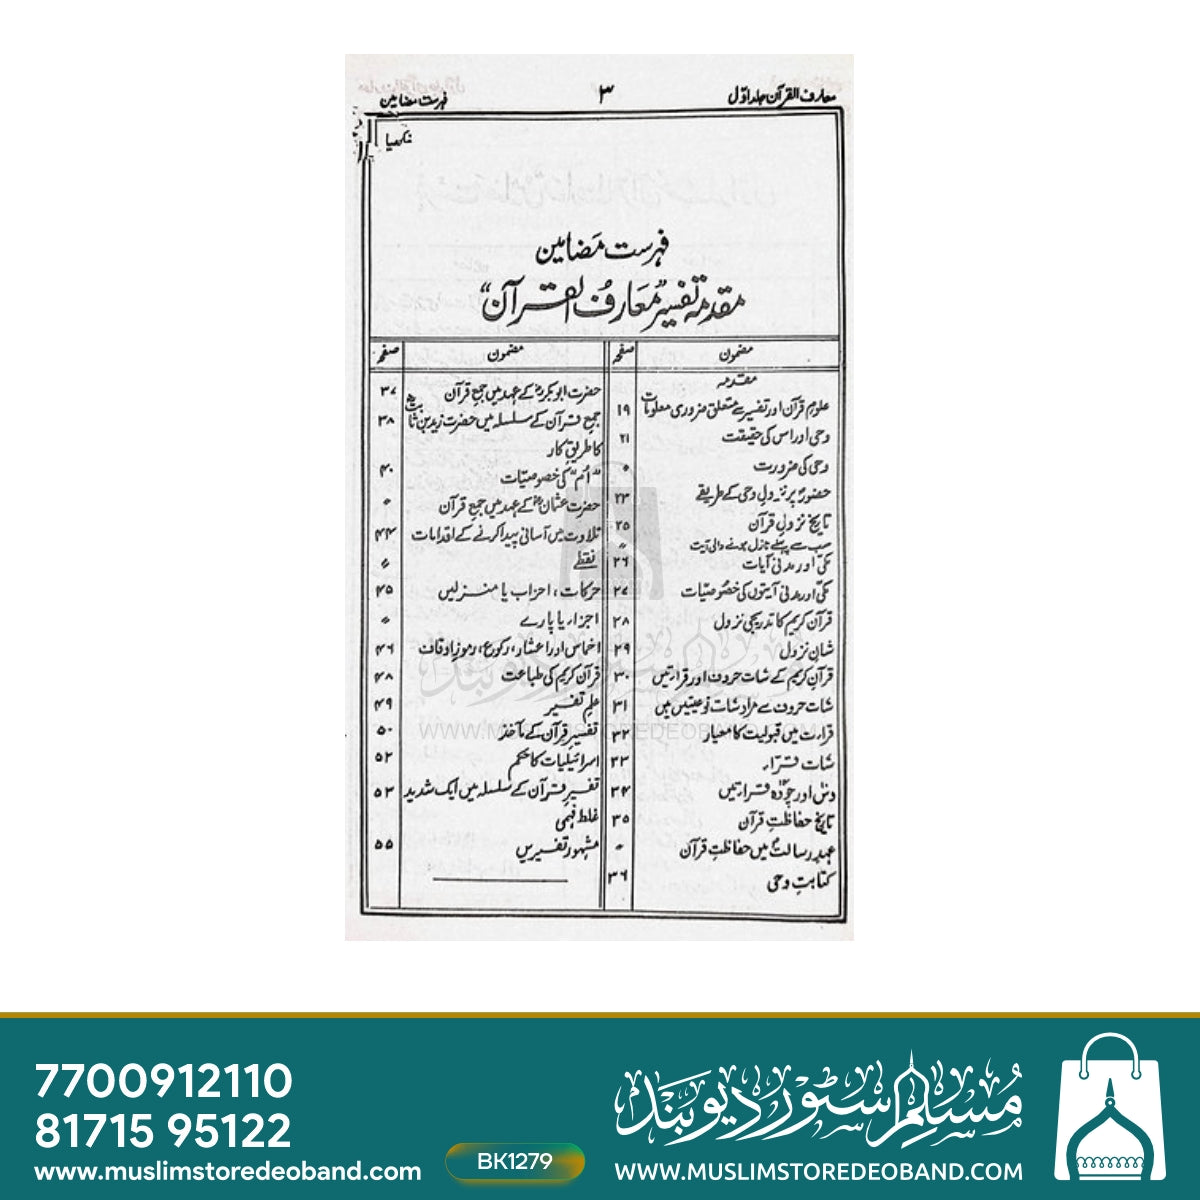 معارف القرآن جلد اوّل
۳
فہرست مضامین
فہرست مَضامین
مقدمہ تفسیر "مَعَارفُ القرآن"
مضمون
صفحہ
مقدمہ
علومِ قرآن اور تفسیر سے متعلق ضروری معلومات
۱۹
وحی اور اس کی حقیقت
۲۱
وحی کی ضرورت
〃
حضورؐ پر نزولِ وحی کے طریقے
۲۳
تاریخ نزولِ قرآن
۲۵
سب سے پہلے نازل ہونے والی آیت
〃
مکّی اور مدنی آیات
۲۶
مکّی اور مدنی آیتوں کی خصوصیّات
۲۷
قرآن کریم کا تدریجی نزول
۲۸
شانِ نزول
۲۹
قرآن کریم کے سات حروف اور قراءتیں
۳۰
سات حروف سے مراد سات نوعیتیں ہیں
۳۱
قراءت میں قبولیت کا معیار
۳۲
سات قُرّاء
۳۳
دس اور چودہ قراءتیں
۳۴
تاریخ حفاظتِ قرآن
۳۵
عہدِ رسالتؐ میں حفاظتِ قرآن
〃
کتابتِ وحی
۳۶
مضمون
صفحہ
حضرت ابوبکرؓ کے عہد میں جمعِ قرآن
۳۷
جمعِ قرآن کے سلسلہ میں حضرت زید بن ثابتؓ
۳۸
کا طریقِ کار
"اُم" کی خصوصیّات
۴۰
حضرت عثمانؓ کے عہد میں جمعِ قرآن
〃
تلاوت میں آسانی پیدا کرنے کے اقدامات
۴۴
نقطے
〃
حرکات، احزاب یا منزلیں
۴۵
اجزاء یا پارے
〃
اخماس اور اعشار، رکوع، رموزِ اوقاف
۴۶
قرآن کریم کی طباعت
۴۸
علم تفسیر
۴۹
تفسیرِ قرآن کے مآخذ
۵۰
اسرائیلیات کا حکم
۵۲
تفسیرِ قرآن کے سلسلہ میں ایک شدید
۵۳
غلط فہمی
مشہور تفسیریں
۵۵
مسلم سٹور دیوبند
WWW.MUSLIMSTOREDEOBAND.COM
7700912110
81715 95122
www.muslimstoredeoband.com
BK1279
مسلم سٹور دیوبند
WWW.MUSLIMSTOREDEOBAND.COM